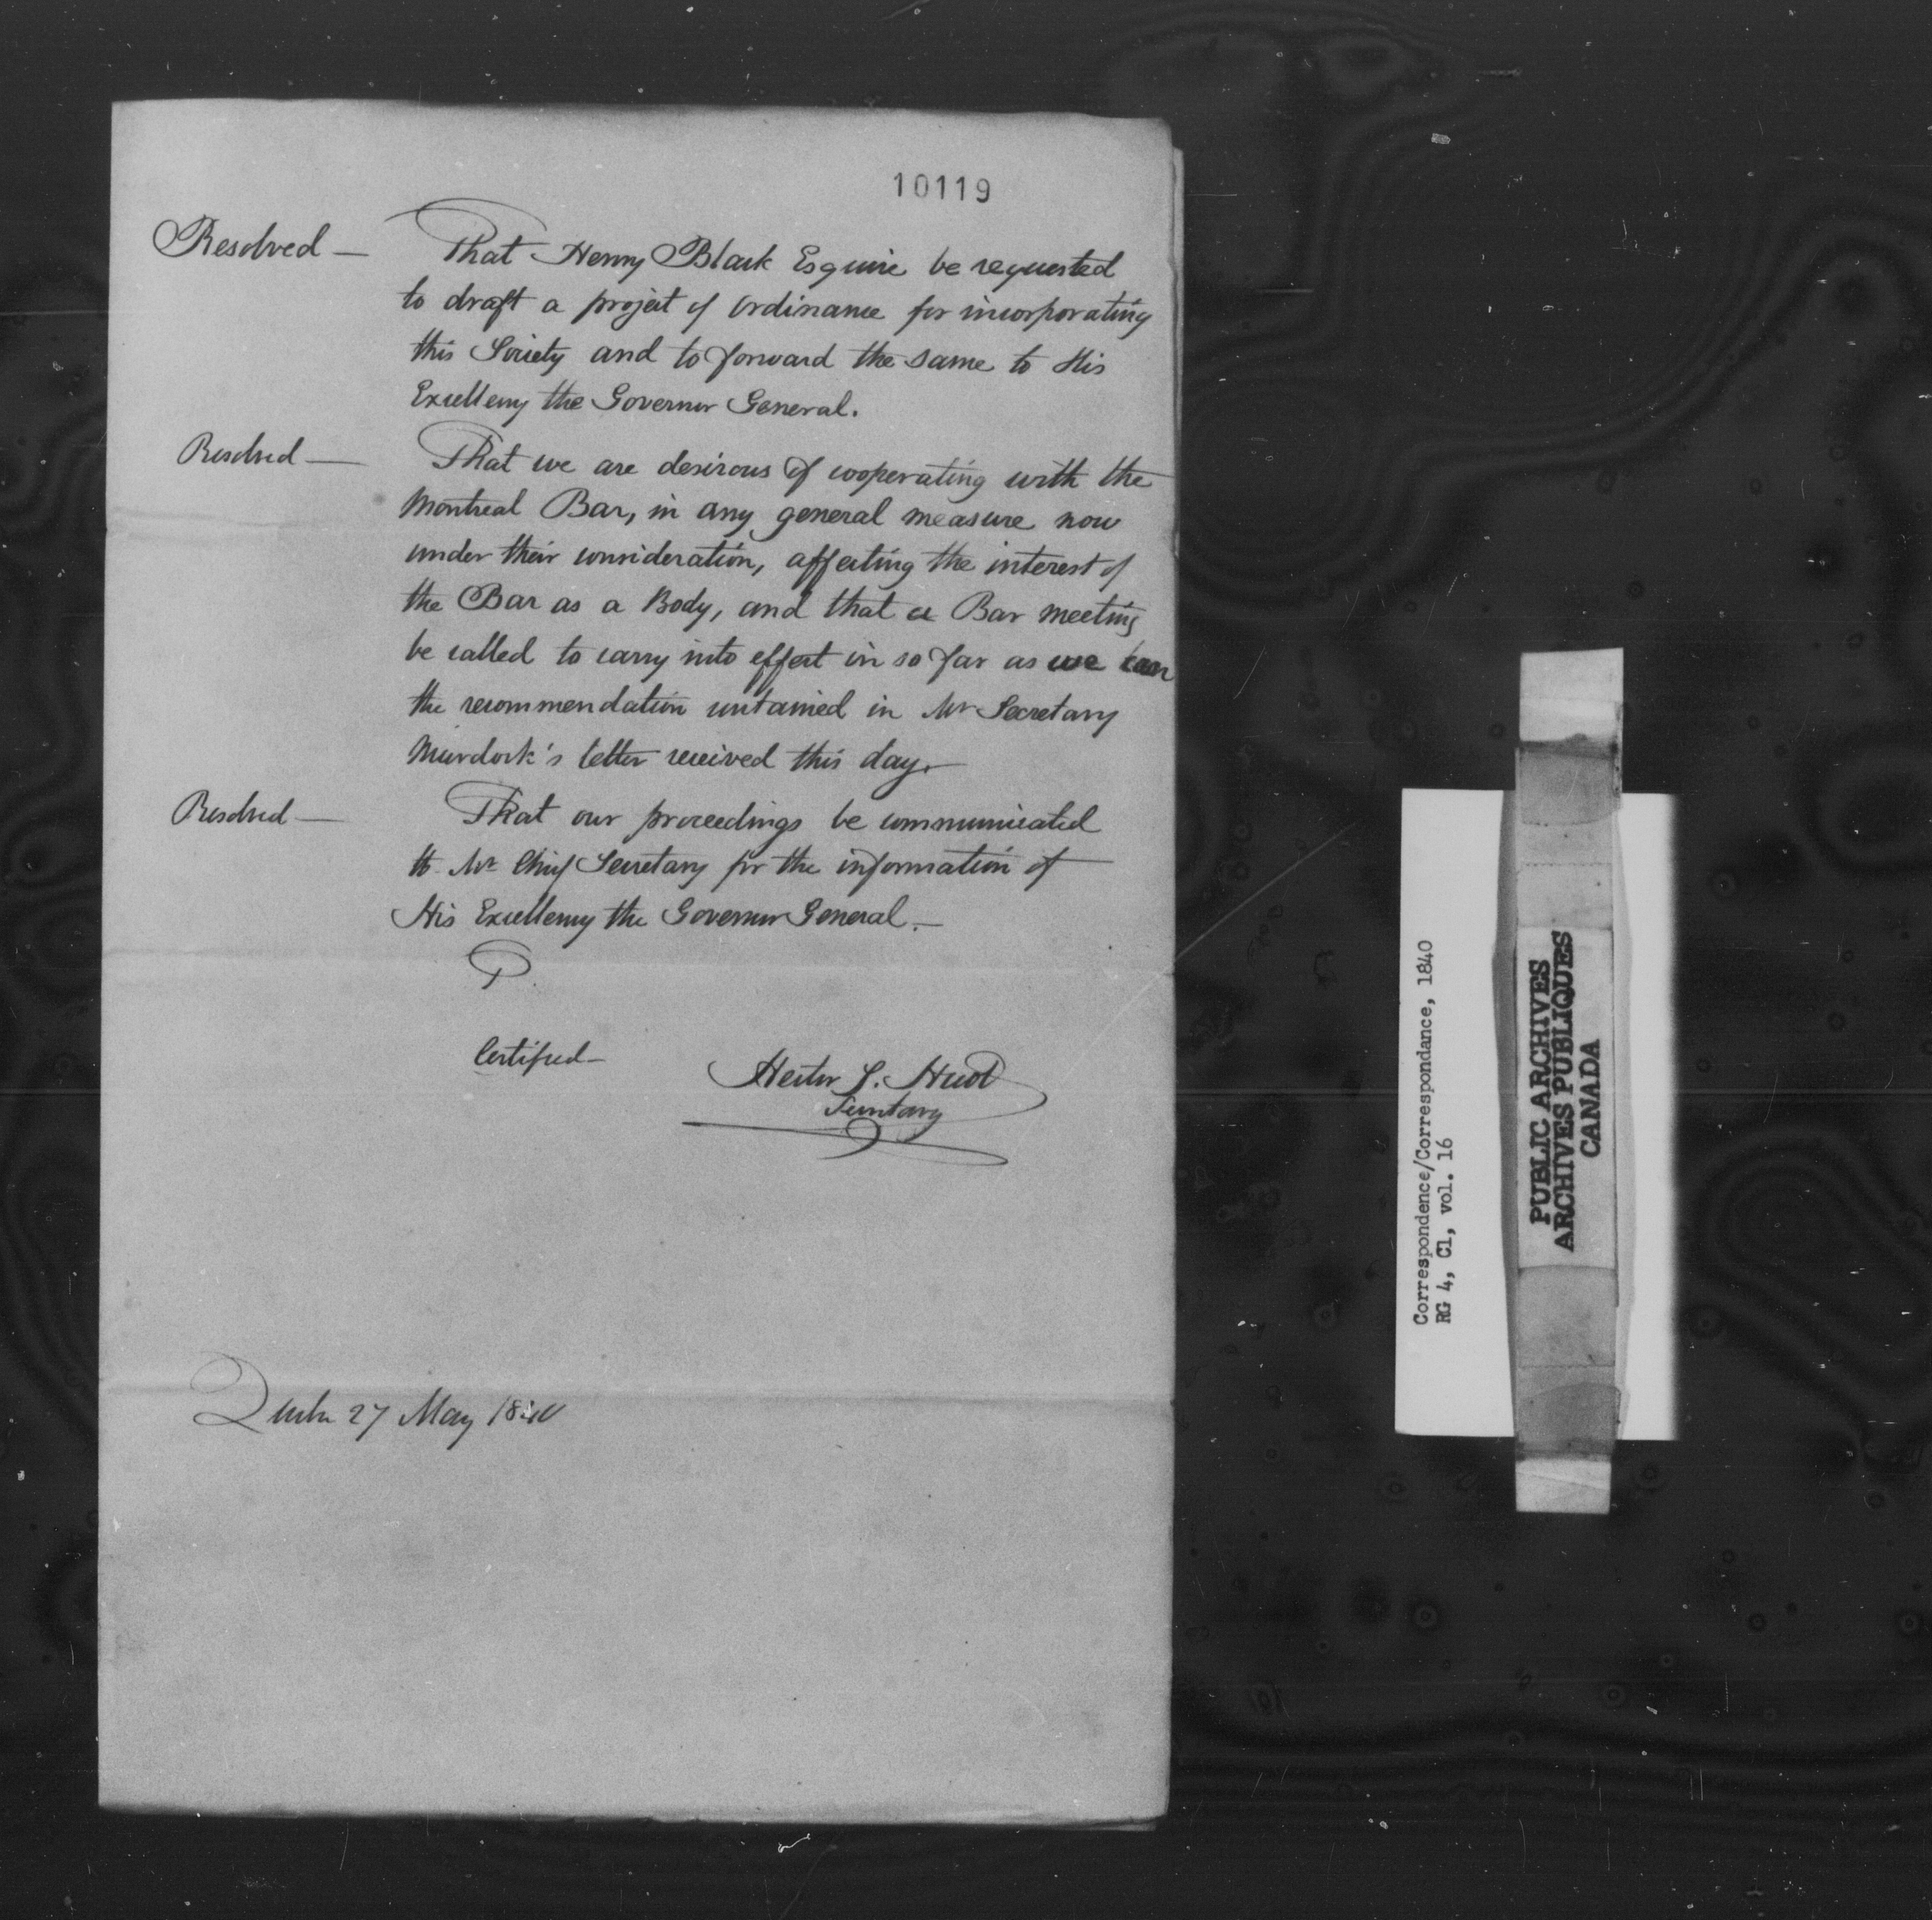 10119
Resolved — That Henry Black Esquire be requested
to draft a projet of Ordinance for incorporating
this Society and to forward the same to His
Excellency the Governor General.
Resolved — That we are desirous of cooperating with the
Montreal Bar, in any general measure now
under their consideration, affecting the interest of
the Bar as a Body, and that a Bar meeting
be called to carry into effect in so far as we can
the recommendation contained in Mr Secretary
Murdock's letter received this day.
Resolved — That our proceedings be communicated
to Mr Chief Secretary for the information of
His Excellency the Governor General. —
Certified —
Hector S. Huot
Secretary
Quebec 27 May 1840
Correspondence/Correspondance, 1840
RG 4, C1, vol. 16
PUBLIC ARCHIVES
ARCHIVES PUBLIQUES
CANADA